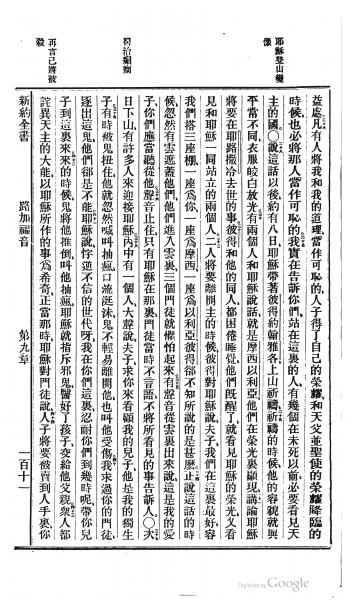 耶穌登山變像
醫治癲癇
再言己將被殺
益處凡有人將我和我的道理當作可恥的人子得了自己的榮耀和天父並聖使的榮耀降臨的
時候也必將那人當作可恥的我實在告訴你們站在這裏的人有幾個在未死以前必要看見天
主的國○說這話以後約有八日耶穌帶著彼得約翰雅各上山祈禱祈禱的時候他的容貌就與
平常不同衣服皎白放光有兩個人和耶穌說話就是摩西以利亞他們在榮光裏顯現講論耶穌
將要在耶路撒冷去世的事彼得和他的同人都困倦睡覺他們旣醒了就看見耶穌的榮光又看
見和耶穌一同站立的兩個人二人將要離開主的時候彼得對耶穌說夫子我們在這裏最好容
我們搭三座棚一座爲你一座爲摩西一座爲以利亞彼得卻不知所說的是甚麽正說這話的時
候忽然有雲遮蓋他們他們進入雲裏三個門徒就懼怕起來有聲音從雲裏出來說這是我的愛
子你們應當聽從他聲音止住只有耶穌在那裏門徒當時不言語不將所看見的事告訴人○次
日下山有許多人來迎接耶穌內中有一個人大聲說夫子求你來看顧我的兒子他是我的獨生
子有時被鬼扭住他就忽然喊叫抽瘋口流涎沫鬼不輕易離開他也叫他受傷我求過你的門徒
逐出這鬼他們卻是不能耶穌說悖逆不信的世代呀我在你們這裏忍耐你們到幾時呢帶你兒
子到這裏來來的時候鬼將他推倒叫他抽瘋耶穌就指斥邪鬼醫好了孩子交給他父親衆人都
詫異天主的大能以耶穌所作的事爲希奇正當那時耶穌對門徒說人子將要被賣到人手裏你
新約全書 路加福音 第九章 一百十一
Digitized by Google